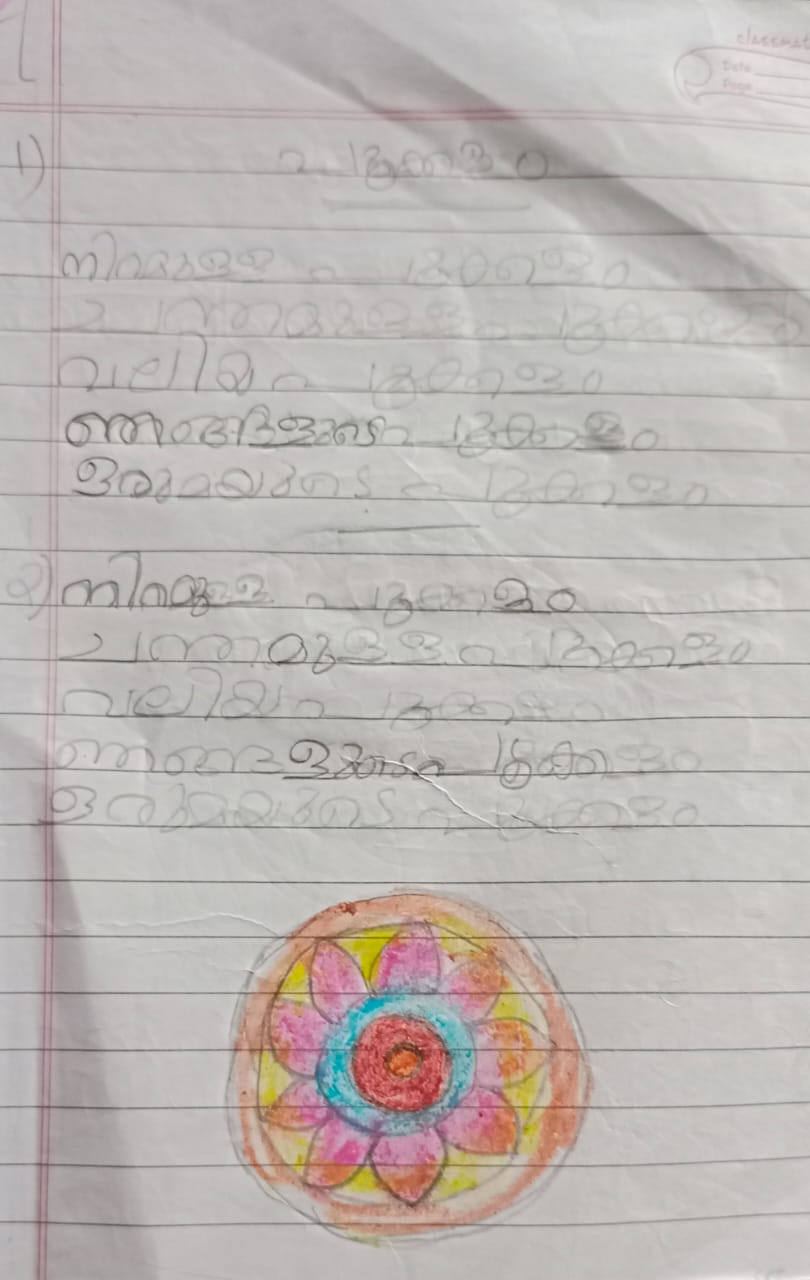 classmate
Date
Page
1)
പൂക്കളം
നിറമുള്ള പൂക്കളം
ചന്തമുള്ള പൂക്കളം
വലിയ പൂക്കളം
ഞങ്ങളുടെ പൂക്കളം
ഒരുമയുടെ പൂക്കളം
2) നിറമുള്ള പൂക്കളം
ചന്തമുള്ള പൂക്കളം
വലിയ പൂക്കളം
ഞങ്ങളുടെ പൂക്കളം
ഒരുമയുടെ പൂക്കളം